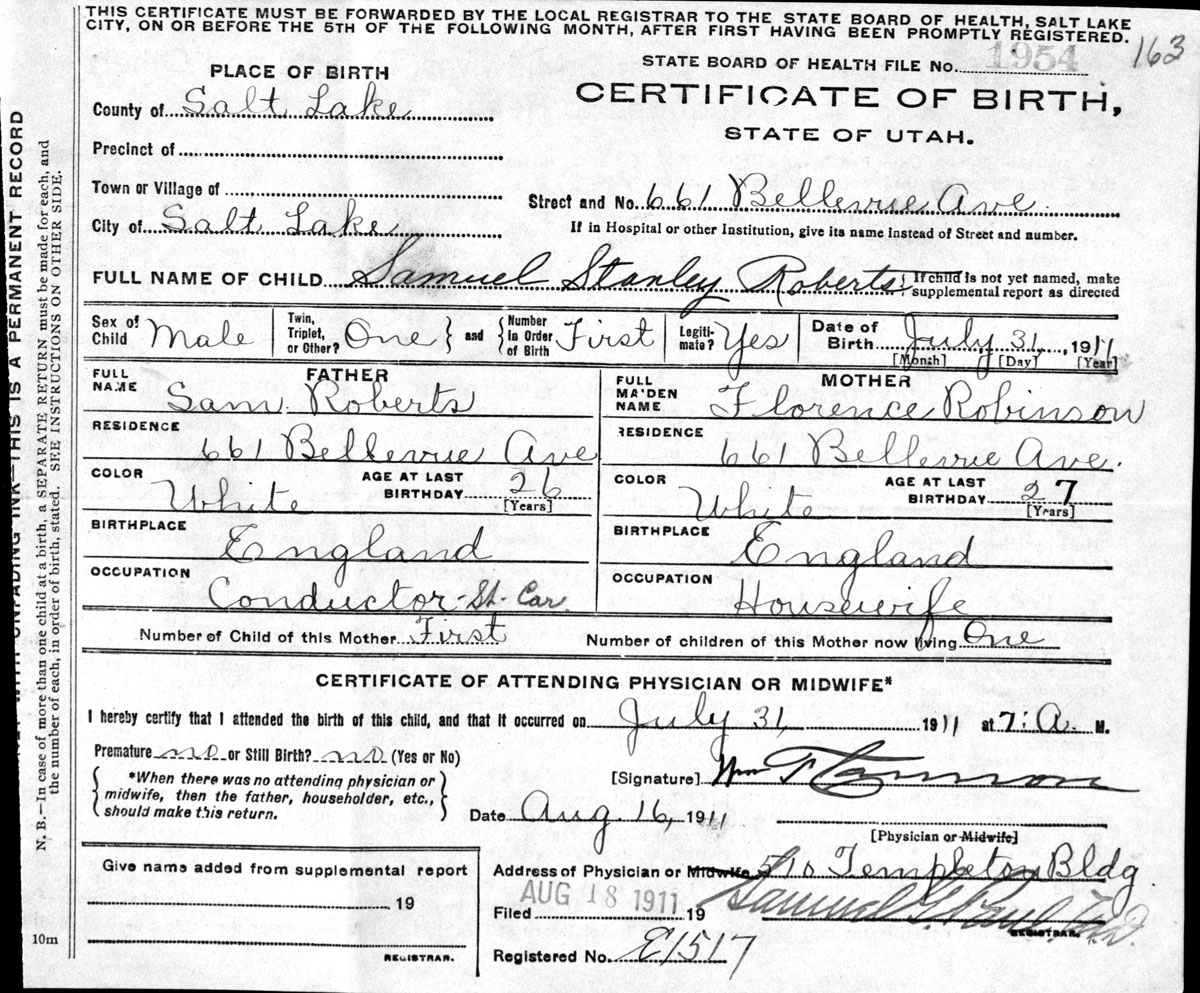 THIS CERTIFICATE MUST BE FORWARDED BY THE LOCAL REGISTRAR TO THE STATE BOARD OF HEALTH, SALT LAKE
CITY, ON OR BEFORE THE 5TH OF THE FOLLOWING MONTH, AFTER FIRST HAVING BEEN PROMPTLY REGISTERED.
163
STATE BOARD OF HEALTH FILE No. 1954
PLACE OF BIRTH
CERTIFICATE OF BIRTH,
STATE OF UTAH.
County of Salt Lake
Precinct of
Town or Village of
City of Salt Lake
Street and No. 661 Bellevue Ave.
If in Hospital or other Institution, give its name instead of Street and number.
FULL NAME OF CHILD Samuel Stanley Roberts { If child is not yet named, make
supplemental report as directed
Sex of Child Male
Twin, Triplet, or Other? One } and { Number in Order of Birth First
Legitimate? Yes
Date of Birth July 31, 1911
[Month] [Day] [Year]
FATHER
FULL NAME Sam Roberts
RESIDENCE 661 Bellevue Ave
COLOR White AGE AT LAST BIRTHDAY 26 [Years]
BIRTHPLACE England
OCCUPATION Conductor-St-Car.
MOTHER
FULL MAIDEN NAME Florence Robinson
RESIDENCE 661 Bellevue Ave.
COLOR White AGE AT LAST BIRTHDAY 27 [Years]
BIRTHPLACE England
OCCUPATION Housewife
Number of Child of this Mother First Number of children of this Mother now living One
CERTIFICATE OF ATTENDING PHYSICIAN OR MIDWIFE*
I hereby certify that I attended the birth of this child, and that it occurred on July 31, 1911 at 7: A. M.
Premature no or Still Birth? no (Yes or No)
{ *When there was no attending physician or
midwife, then the father, householder, etc.,
should make this return. }
[Signature] Wm T Cannon
Date Aug. 16, 1911
[Physician or Midwife]
Address of Physician or Midwife 510 Templeton Bldg
Filed AUG 18 1911 19 Samuel G. Paul
REGISTRAR.
Registered No. E1517
Give name added from supplemental report
19
REGISTRAR.
10m
WITH UNFADING INK—THIS IS A PERMANENT RECORD
N. B.—In case of more than one child at a birth, a SEPARATE RETURN must be made for each, and
the number of each, in order of birth, stated. SEE INSTRUCTIONS ON OTHER SIDE.